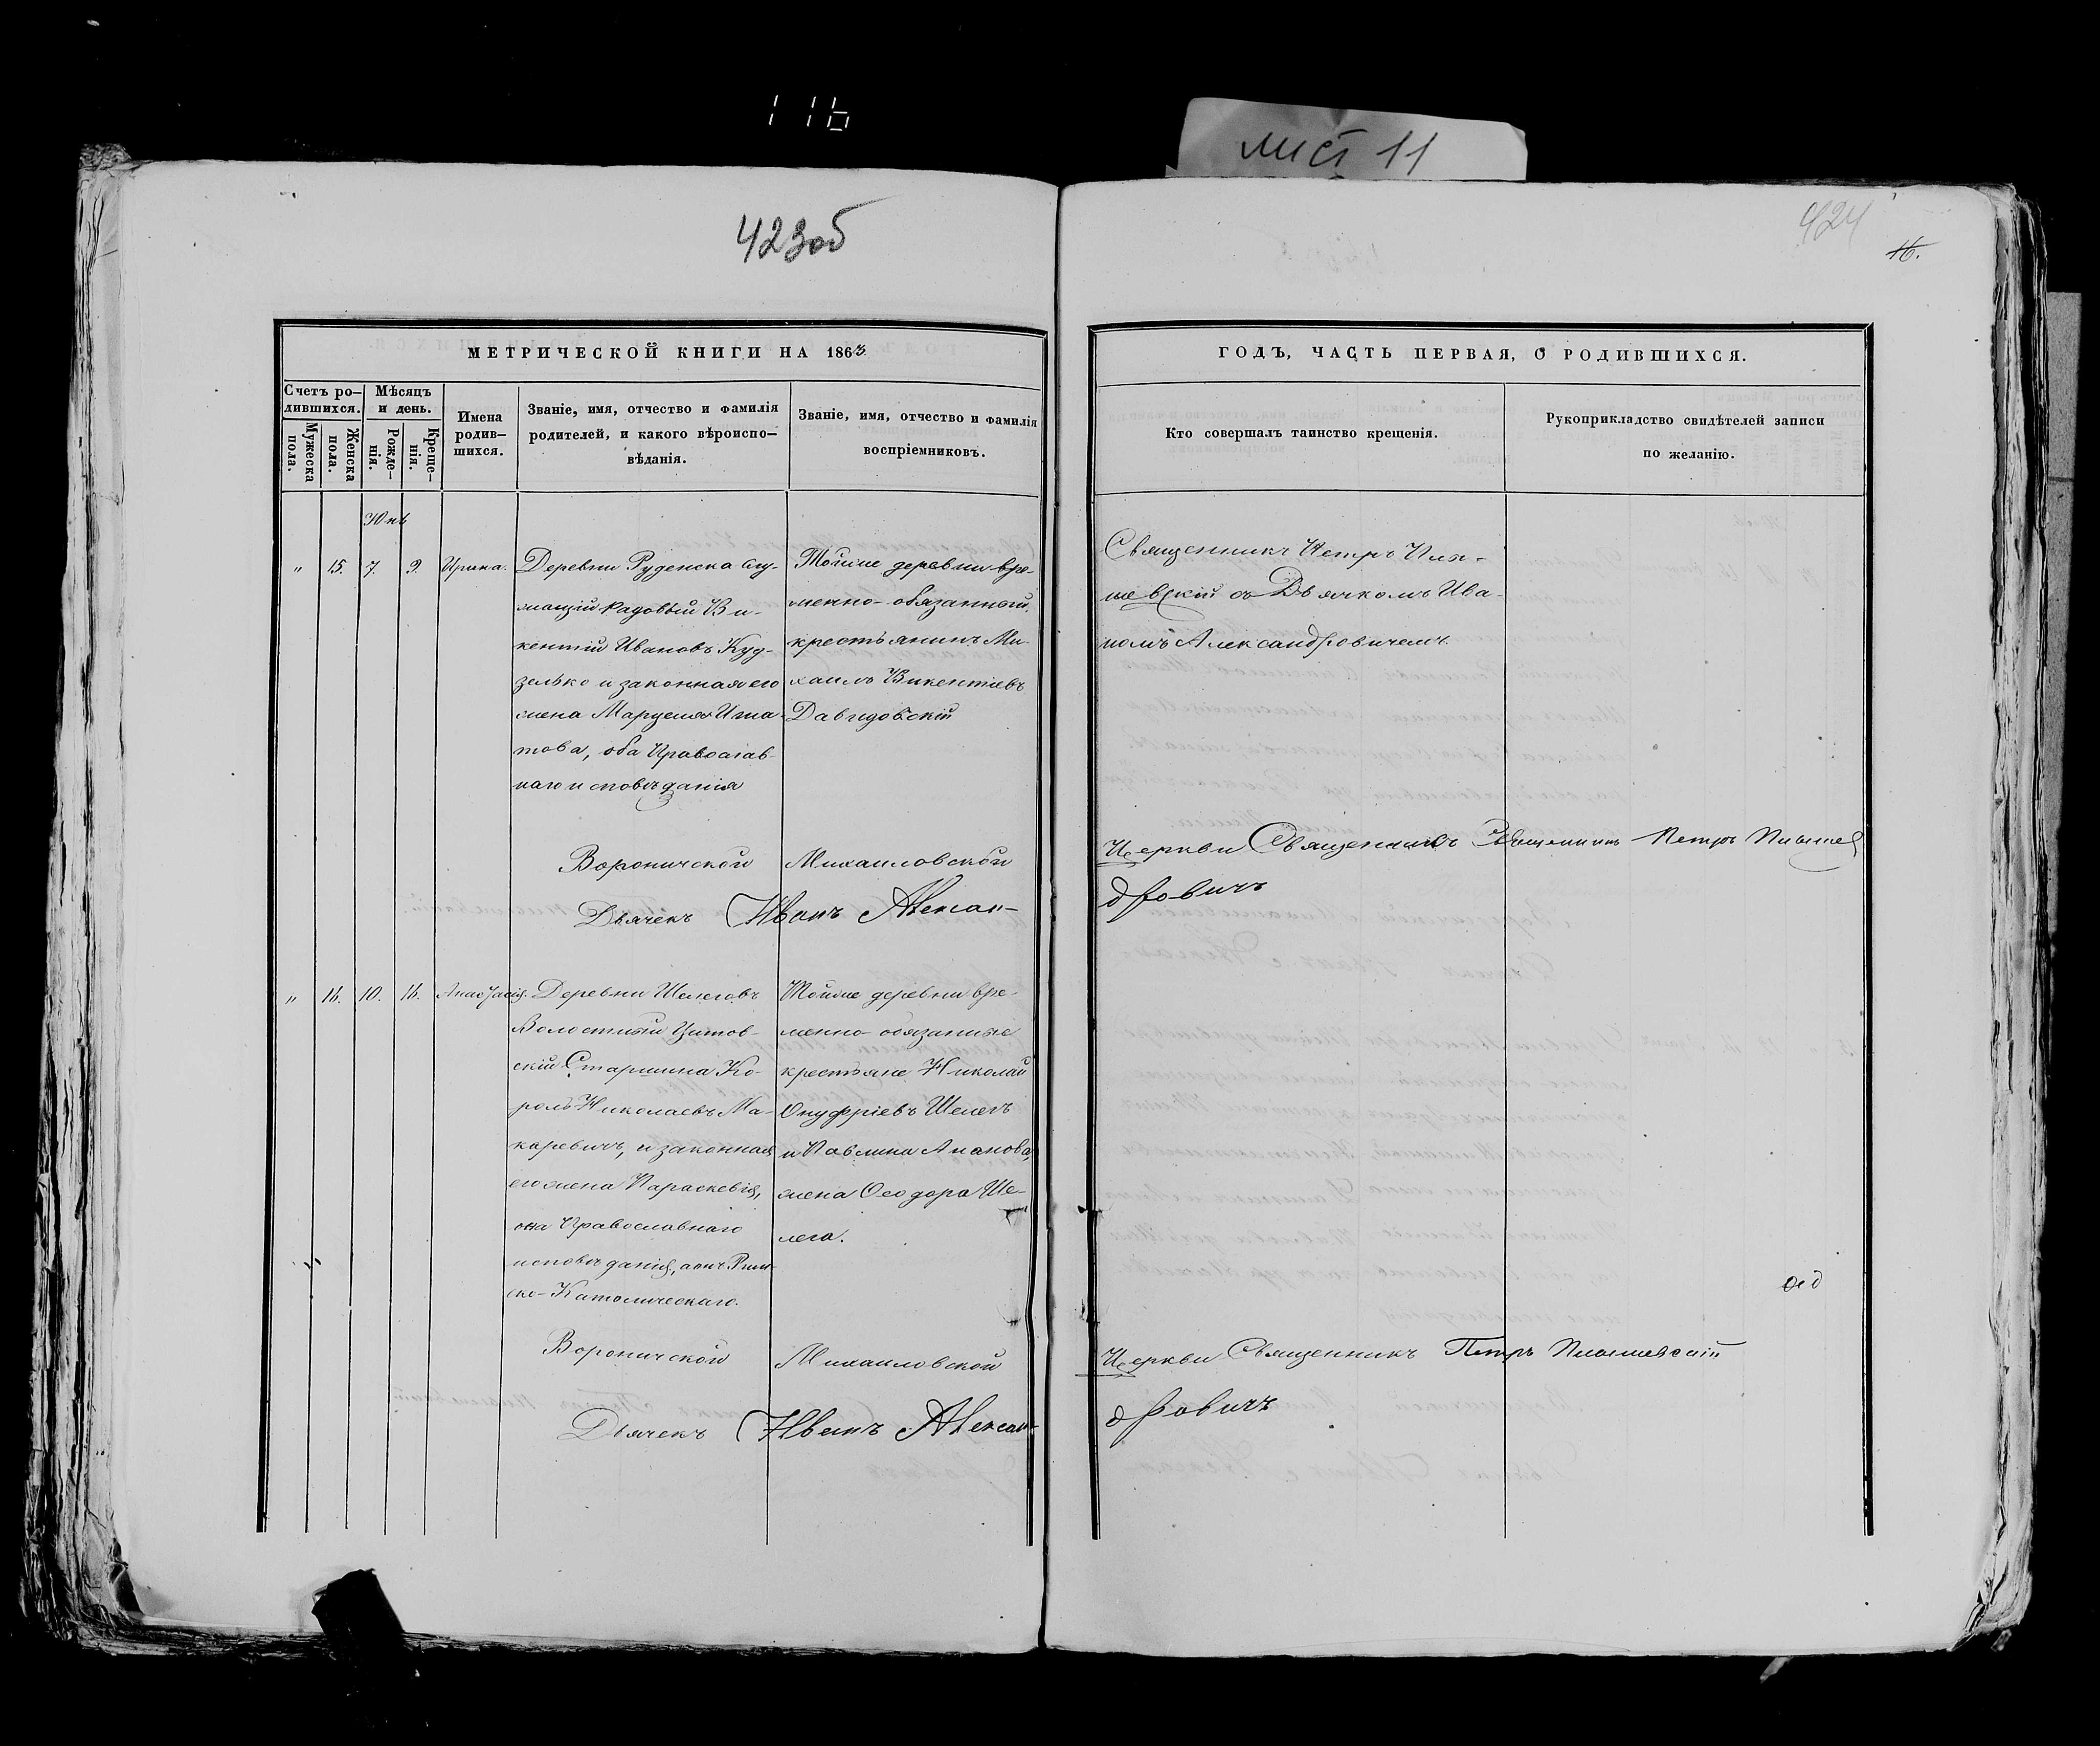 116
лист 11
423об
424
16.
МЕТРИЧЕСКОЙ КНИГИ НА 1863
ГОДЪ, ЧАСТЬ ПЕРВАЯ, О РОДИВШИХСЯ.
Счетъ родившихся.
Мужеска пола.
Женска пола.
Мѣсяцъ и день.
Рожденія.
Крещенія.
Имена родившихся.
Званіе, имя, отчество и фамилія родителей, и какого вѣроисповѣданія.
Званіе, имя, отчество и фамилія воспріемниковъ.
Кто совершалъ таинство крещенія.
Рукоприкладство свидѣтелей записи по желанію.
Юнь
„ 15. 7. 9. Ирина.
Деревни Руденска слу-
жащій рядовый Ви-
кентій Ивановъ Куд-
зелько и законная его
жена Марцеля Игна-
това, оба Православ-
наго исповѣданія
Тойже деревни вре-
менно-обязанный
крестьянинъ Ми-
хаилъ Викентіевъ
Давидовскій
Священникъ Петръ
шевскій съ Дьячкомъ Ива-
номъ Александровичемъ.
Вороничской Михаиловской Церкви Священникъ Петръ
Дьячекъ Иванъ Алексан-
дровичъ
„ 16. 10. 16. Анастасія.
Деревни Шелеговъ
Волостный Цитов-
скій Старшина Ка-
роль Николаевъ Ма-
каревичъ, и законная
его жена Параскевія,
она Православнаго
исповѣданія, а онъ Рим-
ско-Католическаго.
Тойже деревни вре-
менно-обязанные
крестьяне Николай
Онуфріевъ Шелегъ
и Павлина
жена Ѳеодора Ше-
лега.
Вороничской Михаиловской Церкви Священникъ Петръ
Дьячекъ Иванъ Алексан-
дровичъ